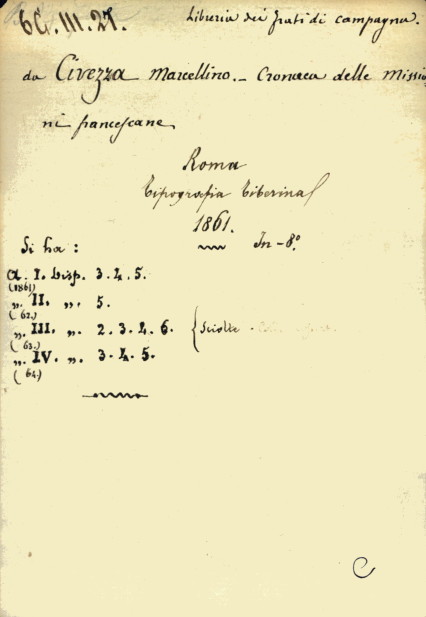 6G.III.27.
Libreria dei frati di campagna.
da Civezza Marcellino. - Cronaca delle Missio
ni francescane
Roma
Tipografia Tiberina
1861.
In-8º
Si ha:
a. I. Disp. 3.4.5.
(1861)
„. II. „. 5.
(62.)
„. III. „. 2.3.4.6. { Sciolte
(63.)
„. IV. „. 3.4.5.
(64.)
C